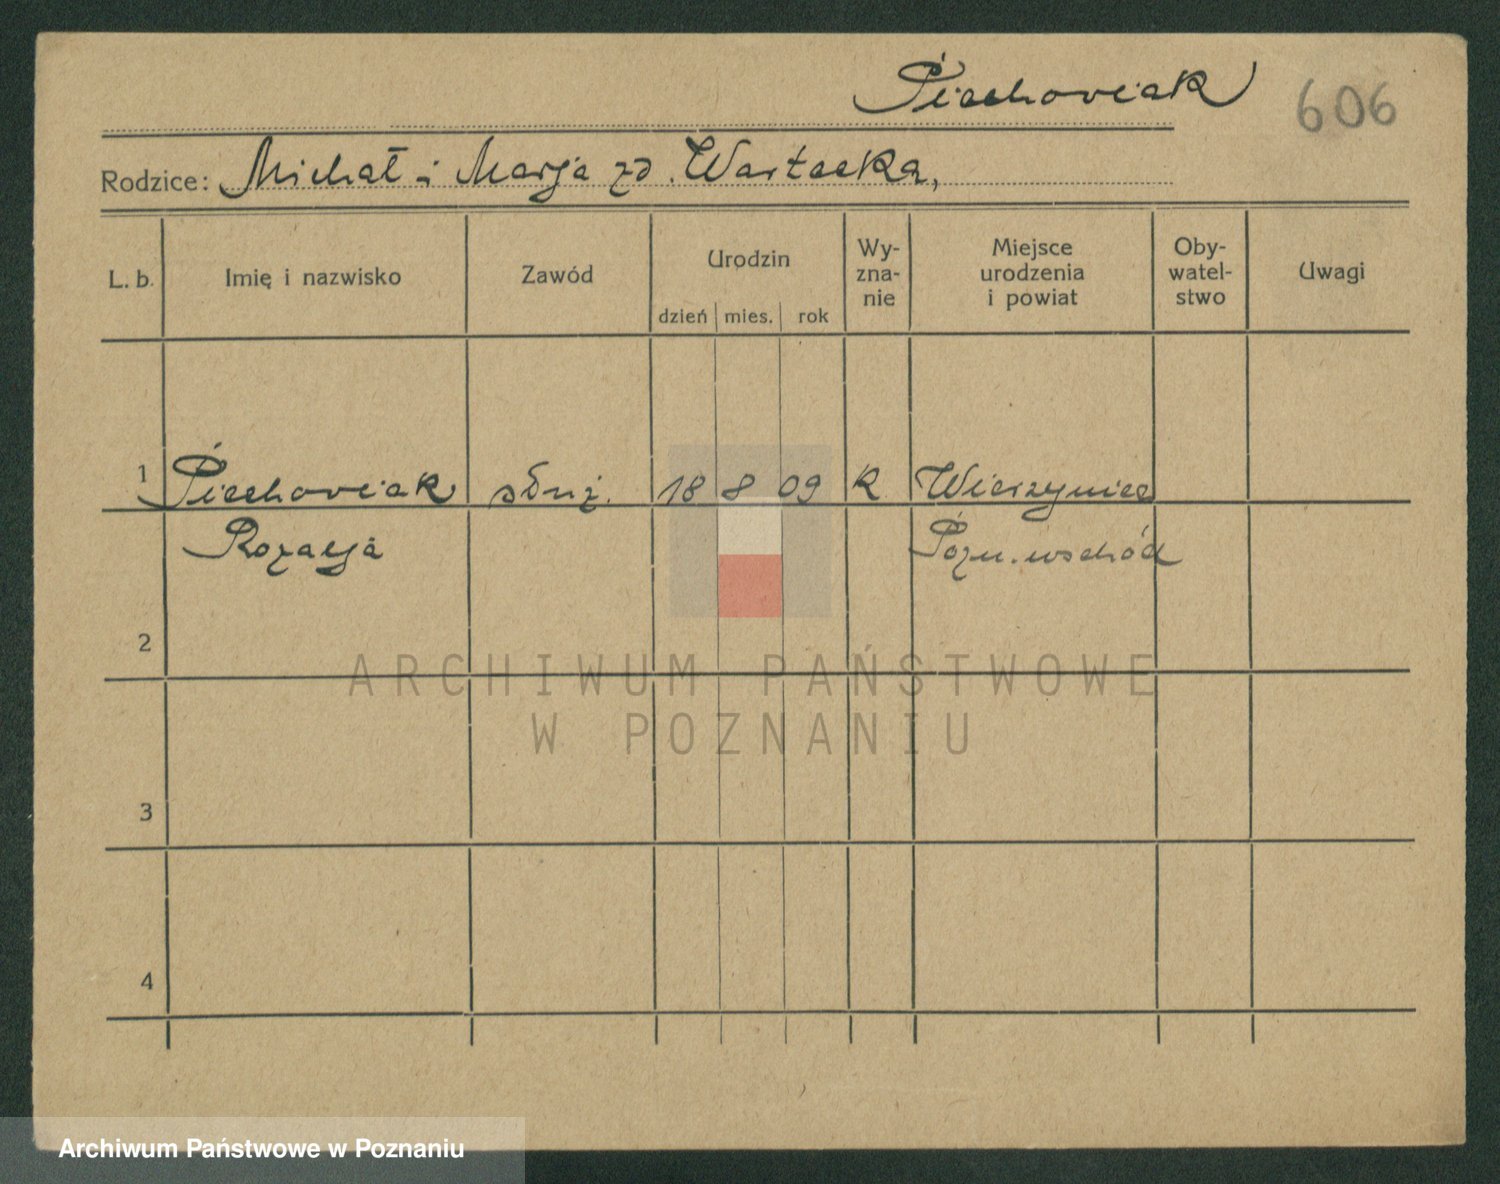 Piechowiak
606
Rodzice: Michał i Marja zd. Wartecka,
L. b. Imię i nazwisko Zawód Urodzin dzień mies. rok Wy-zna-nie Miejsce urodzenia i powiat Oby-watel-stwo Uwagi
1 Piechowiak służ. 18 8 09 k Wierzyniec
Rozalja Pozn. wschód
2
ARCHIWUM PAŃSTWOWE
W POZNANIU
3
4
Archiwum Państwowe w Poznaniu